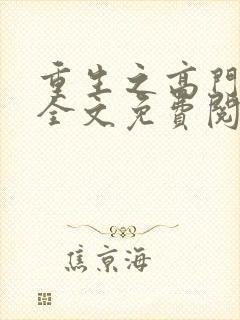 重生之高門
全文免費閱
焦京海